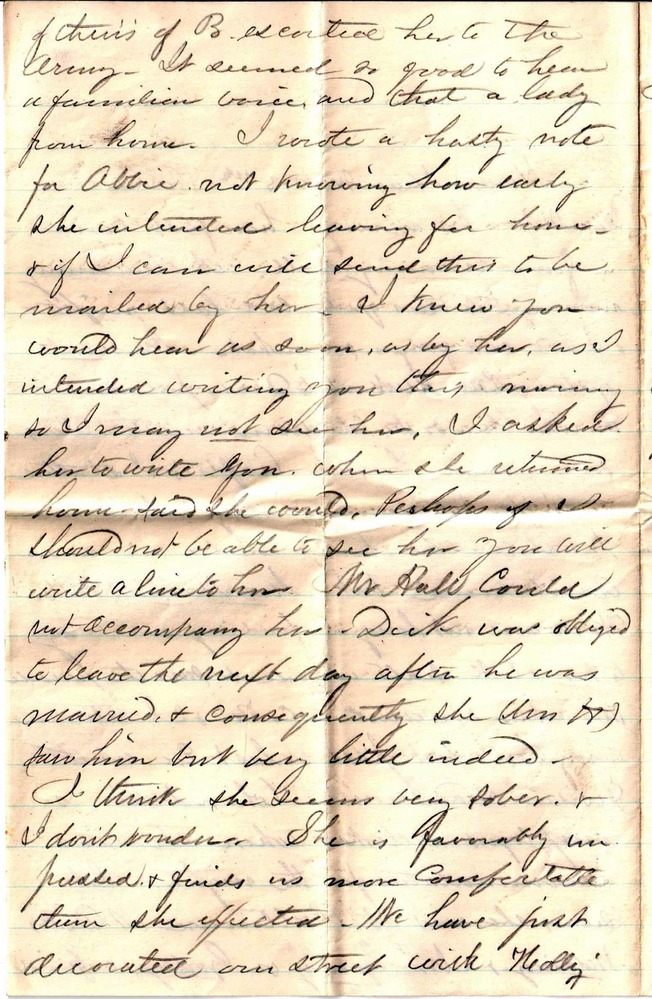 of theirs of B. escorted her to the
Army - It seemed so good to hear
a familiar voice, and that a lady
from home. I wrote a hasty note
for Abbie. not knowing how early
she intended leaving for home -
& if I can will send this to be
mailed by her - I knew you
would hear as soon, as by her, as I
intended writing you this morning
so I may not see her, I asked
her to write you. when she returned
home - said she would, Perhaps if I
should not be able to see her you will
write a line to her Mr Hall Could
not accompany her - Dick was obliged
to leave the next day after he was
married. & consequently she (Mrs H)
saw him but very little indeed -
I think she seems very sober. &
I don't wonder - She is favorably im
pressed. & finds us more Comfortable
than she expected - We have just
decorated our street with "Holly"